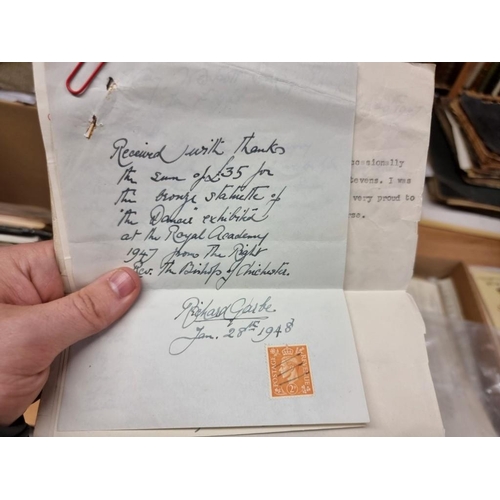 Received with thanks
the sum of £35 for
the bronze statuette of
the Dancer exhibited
at the Royal Academy
1947 from The Right
Rev. The Bishop of Chichester.
Richard Garbe.
Jan. 28th 1948
occasionally
tevens. I was
very proud to